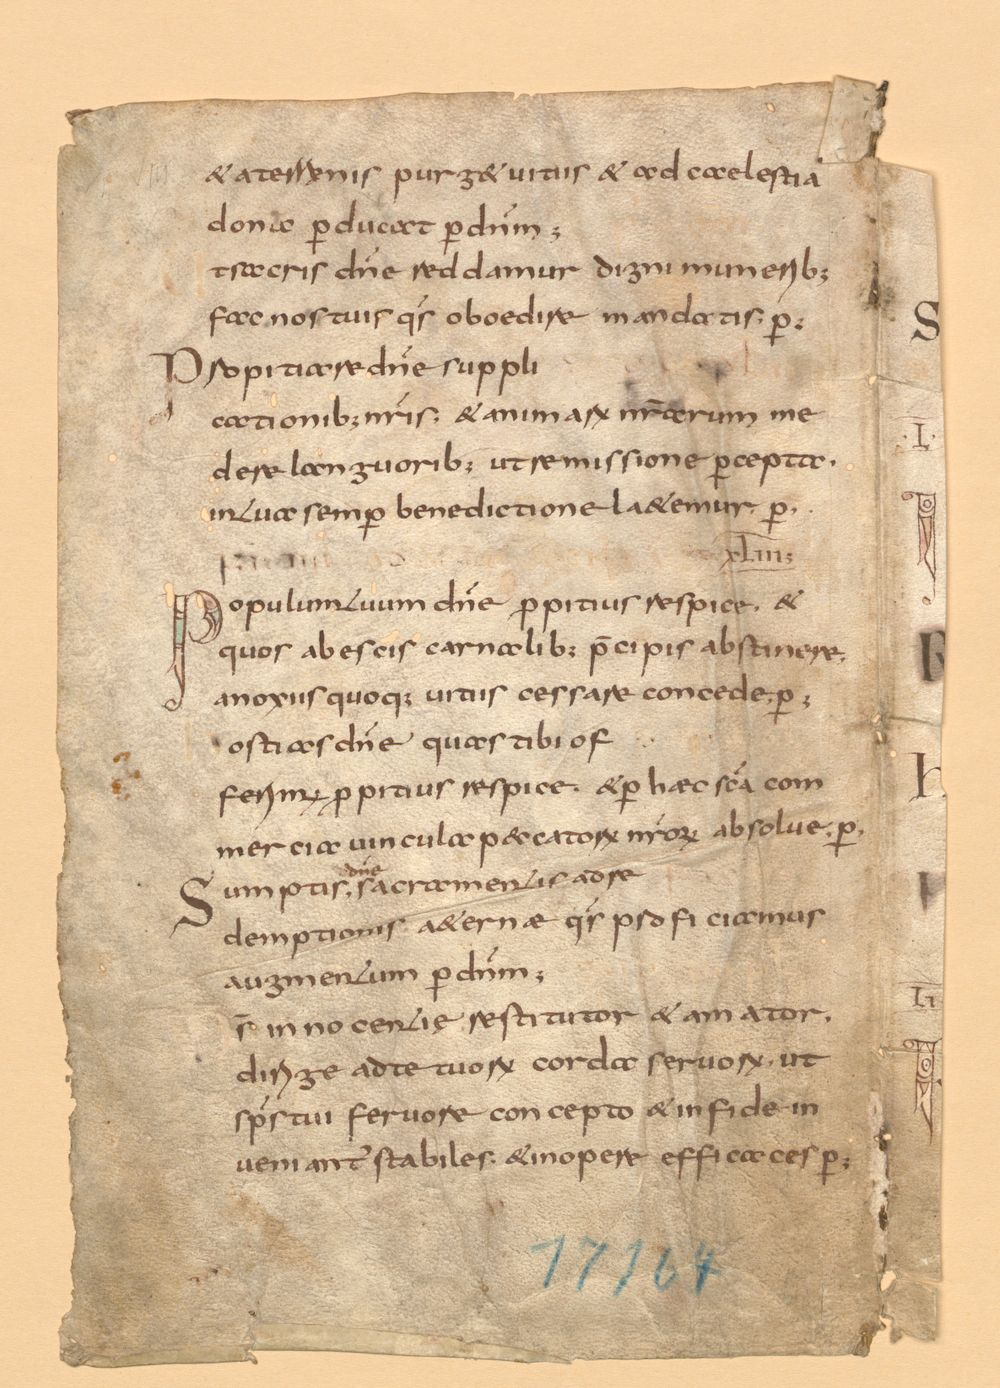 & aterrenis purg& uitiis & ad caelestia
dona p̱ducat p̱ dn̄m;
tsacris dn̄e reddamur digni munerib;
fac nos tuis q̄s oboedire mandatis. p̱;
Propitiare dn̄e suppli
cationib; nr̄is. & animarꝝ nr̄arum me
dere languorib; ut remissione p̱cepta.
intua semp̱ benedictione la&emur. p̱.
xLIII;
Populum tuum dn̄e ꝓpitius respice. &
quos ab escis carnalib; p̄cipis abstinere.
anoxiis quoq; uitiis cessare concede. p̱;
ostias dn̄e quas tibi of
ferimꝰ ꝓpitius respice. & p̱ haec sc̄a com
mercia uincula peccatorꝝ nr̄oꝝ absolue. p̱.
dn̄e
Sumptis, sacramentis adre
demptionis a&ernae q̄s proficiamus
augmentum p̱ dn̄m;
s̄ innocentie restitutor & amator.
dirige adte tuorꝝ corda seruorꝝ. ut
sp̄s tui feruore concepto & infide in
ueniant᷑ stabiles. & inopere efficaces p̱;
17164
S
.I.
h